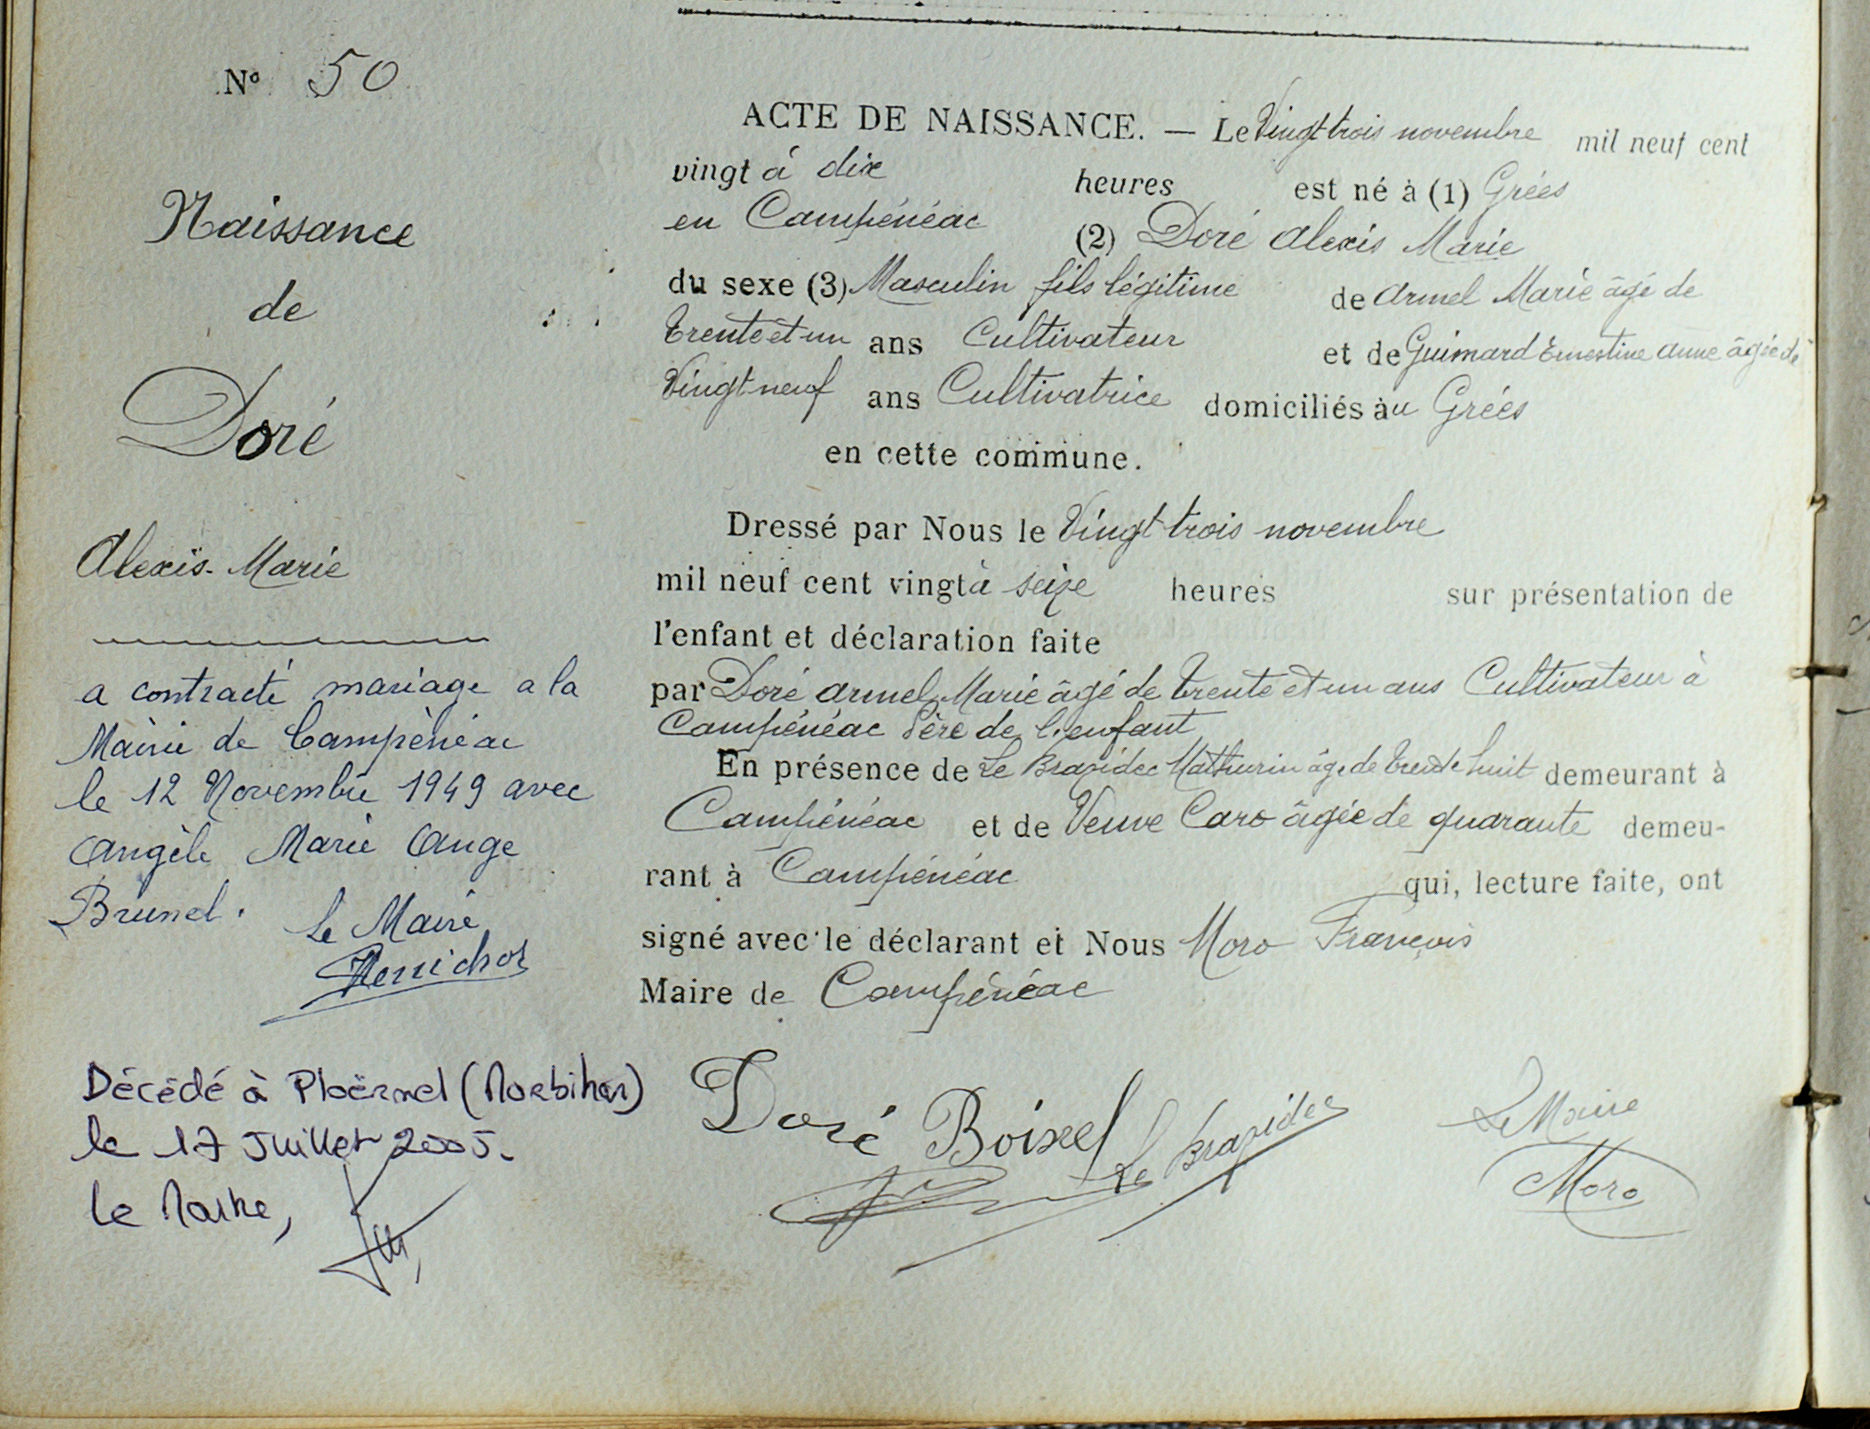 N° 50
Naissance
de
Doré
Alexis-Marie
a contracté mariage a la
Mairie de Campénéac
le 12 Novembre 1949 avec
Angèle Marie Ange
Brunel.
Le Maire
Décédé à Ploërmel (Morbihan)
le 17 Juillet 2005.
le Maire,
ACTE DE NAISSANCE. — Le Vingt trois novembre mil neuf cent
vingt à dix heures est né à (1) Grées
en Campénéac (2) Doré Alexis Marie
du sexe (3) Masculin fils légitime de Armel Marie âgé de
trente et un ans Cultivateur et de Guimard Ernestine Anne âgée de
Vingt neuf ans Cultivatrice domiciliés au Grées
en cette commune.
Dressé par Nous le Vingt trois novembre
mil neuf cent vingt à seize heures sur présentation de
l'enfant et déclaration faite
par Doré Armel Marie âgé de trente et un ans Cultivateur à
Campénéac Père de l'enfant
En présence de Le Brazidec Mathurin âgé de trente huit demeurant à
Campénéac et de Veuve Caro âgée de quarante demeu-
rant à Campénéac qui, lecture faite, ont
signé avec le déclarant et Nous Moro François
Maire de Campénéac
Doré Boixel Le Brazidec
Le Maire
Moro